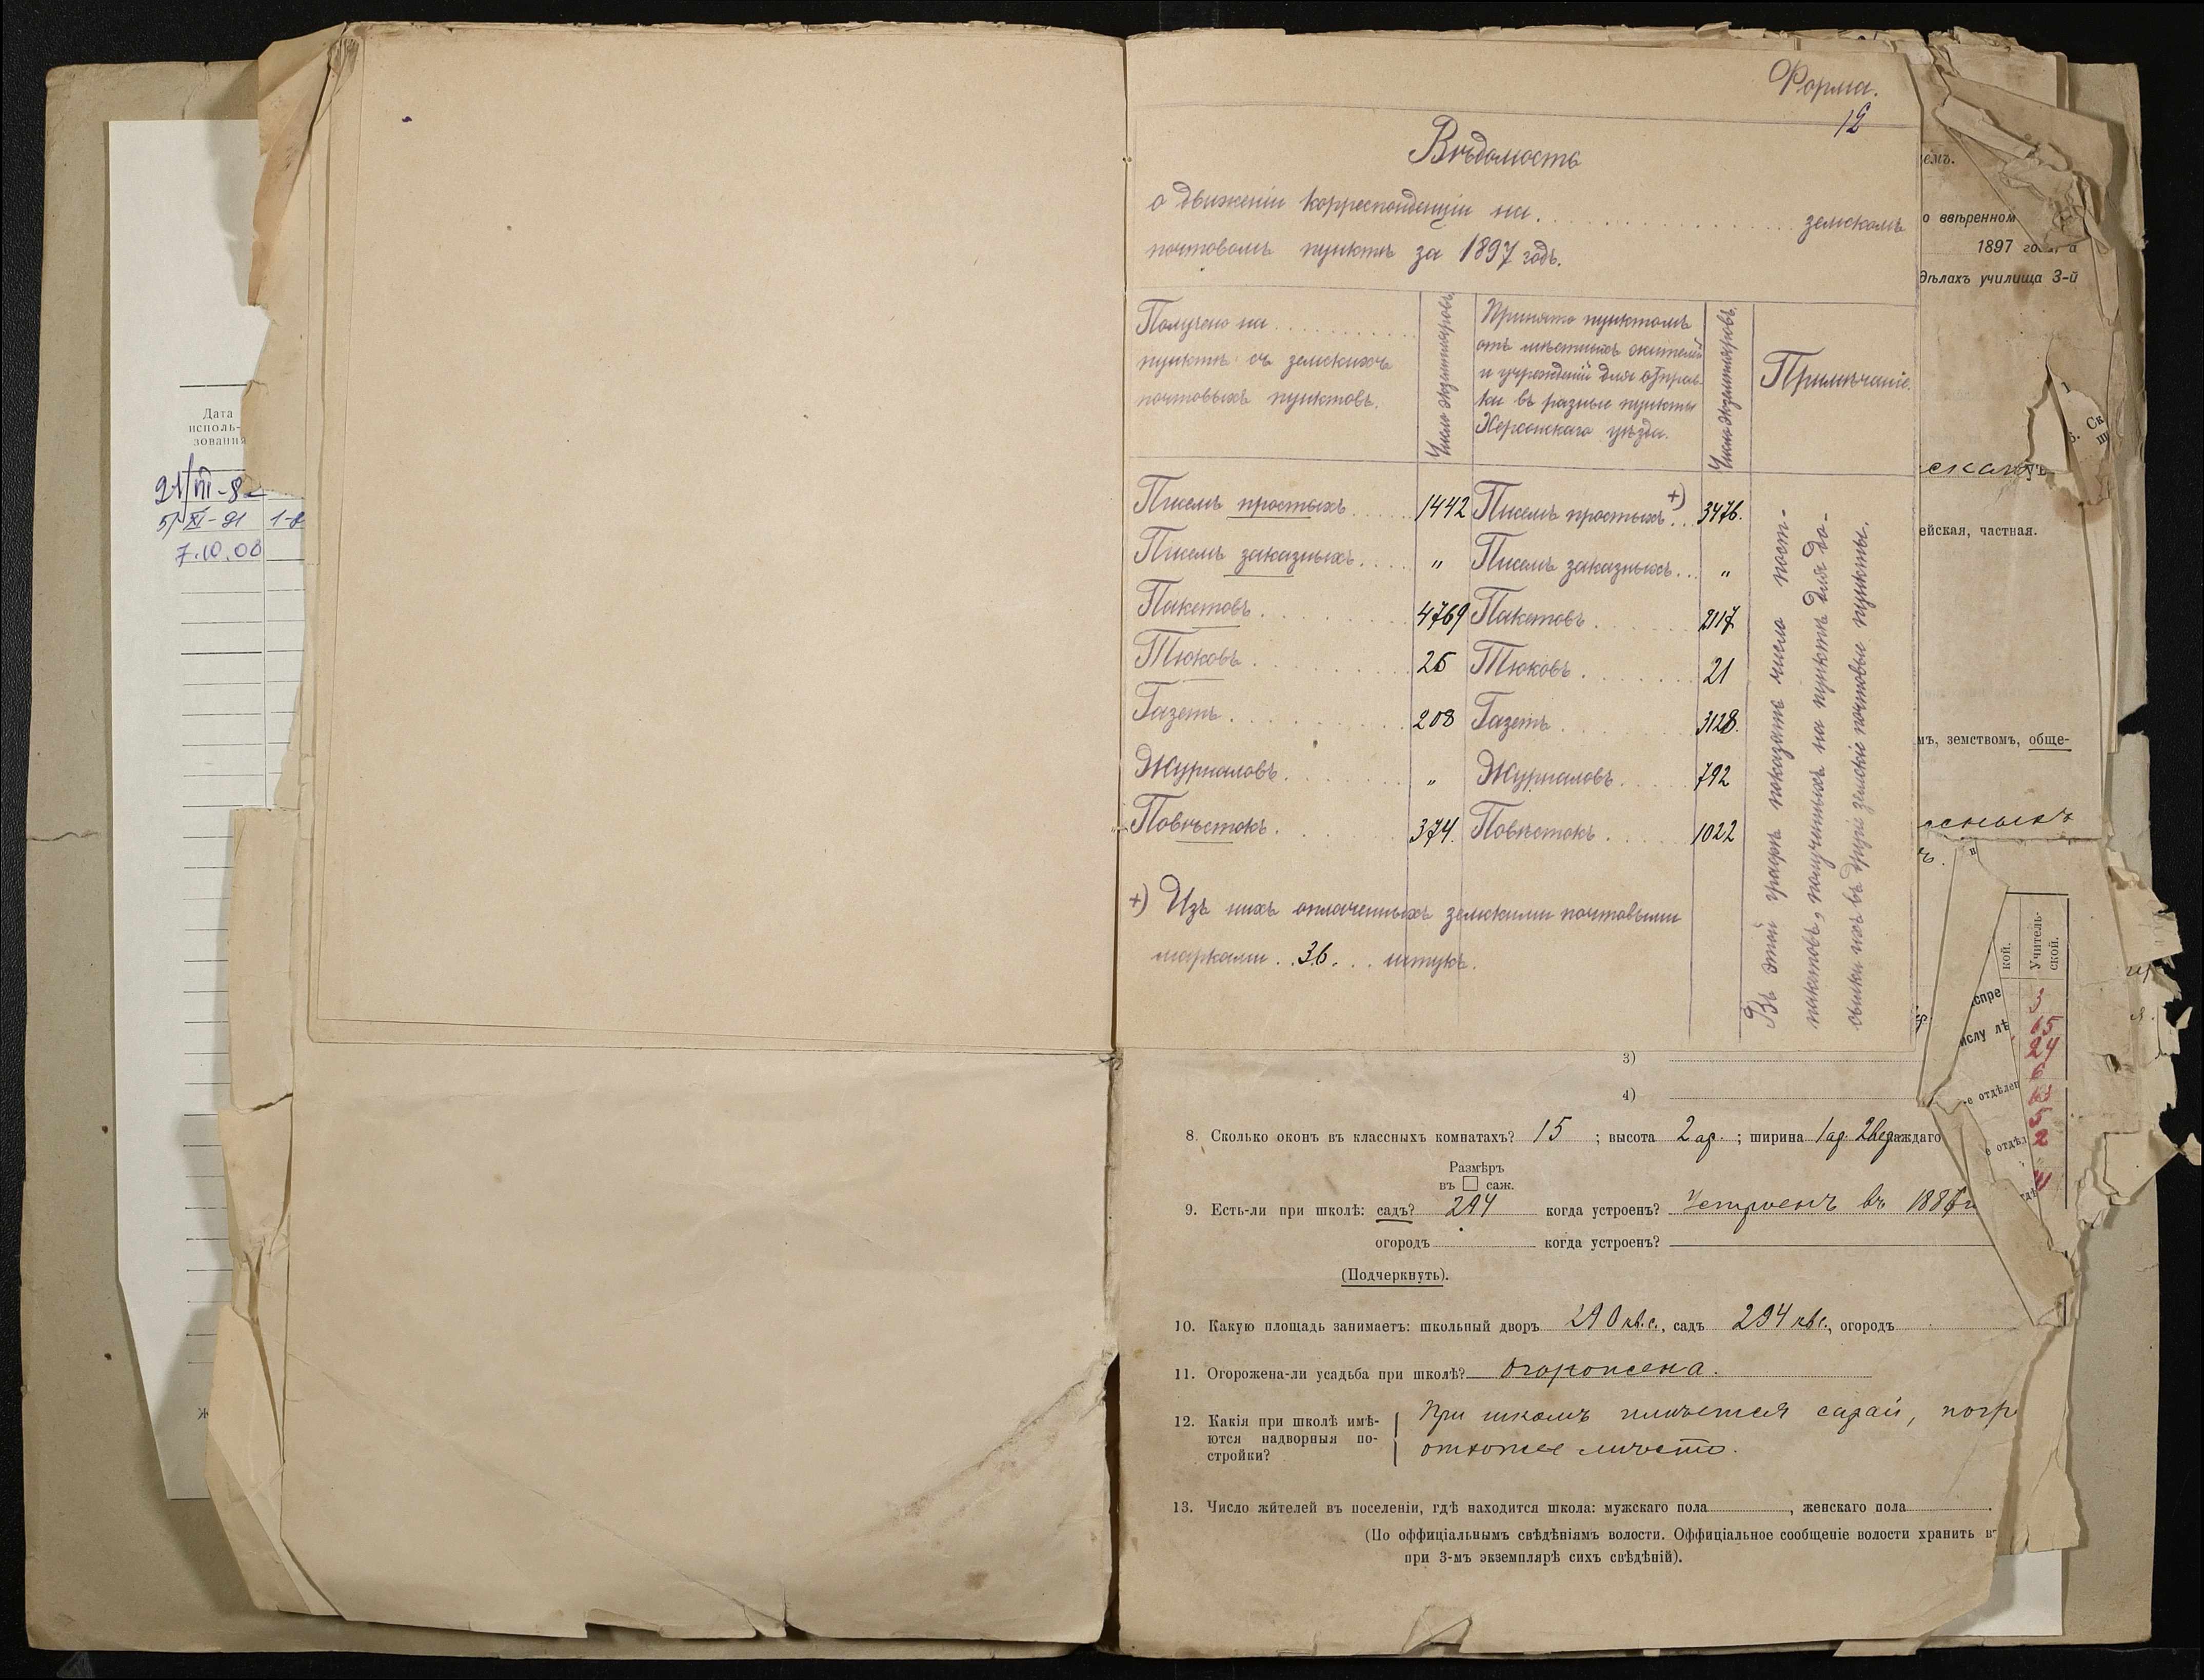 Дата
исполь-
зования
21/VII-8
5/XI-91 1-8
7.10.08
Форма.
12
Вѣдомость
о движеніи корреспонденціи на . . . . . . земскомъ
почтовомъ пунктѣ за 1897 годъ.
Получено на . . . . . .
пунктѣ съ земскихъ
почтовыхъ пунктовъ.
Число экземпляровъ.
Принято пунктомъ
отъ мѣстныхъ жителей
и учрежденій для отправ-
ки въ разные пункты
Херсонскаго уѣзда.
Число экземпляровъ.
Примѣчаніе.
Писемъ простыхъ . . . . 1442 Писемъ простыхъ +) . . 3476.
Писемъ заказныхъ . . . . „ Писемъ заказныхъ . . . „
Пакетовъ . . . . . . 4769 Пакетовъ . . . . . 2117
Тюковъ . . . . . . 25 Тюковъ . . . . . 21
Газетъ . . . . . . 208 Газетъ . . . . . 3128.
Журналовъ . . . . . „ Журналовъ . . . . 792
Повѣстокъ . . . . . 374. Повѣстокъ . . . . 1022
Въ этой графѣ показать число пост-
пакетовъ, полученныхъ на пунктѣ для до-
сылки ихъ въ другіе земскіе почтовые пункты.
+) Изъ нихъ оплаченныхъ земскими почтовыми
марками . . 36. . . штукъ.
емъ.
о ввѣренном
1897 го
дѣлахъ училища 3-й
ейская, частная.
мъ, земствомъ, обще-
кой.
Учитель-
ской.
3
15
24
6
5
2
3)
4)
8. Сколько оконъ въ классныхъ комнатахъ? 15 ; высота 2 ар. ; ширина 1 ар. 2 вер. каждаго
Размѣръ
въ □ саж.
9. Есть-ли при школѣ: садъ? 294 когда устроенъ? Устроенъ въ 1887 г
огородъ когда устроенъ?
(Подчеркнуть).
10. Какую площадь занимаетъ: школьный дворъ 290 кв.с., садъ 294 кв.с., огородъ
11. Огорожена-ли усадьба при школѣ? Огорожена.
12. Какія при школѣ имѣ-
ются надворныя по-
стройки?
При школѣ имѣется сарай, погр
отхожее мѣсто.
13. Число жителей въ поселеніи, гдѣ находится школа: мужскаго пола , женскаго пола .
(По оффиціальнымъ свѣдѣніямъ волости. Оффиціальное сообщеніе волости хранить въ
при 3-мъ экземплярѣ сихъ свѣдѣній).